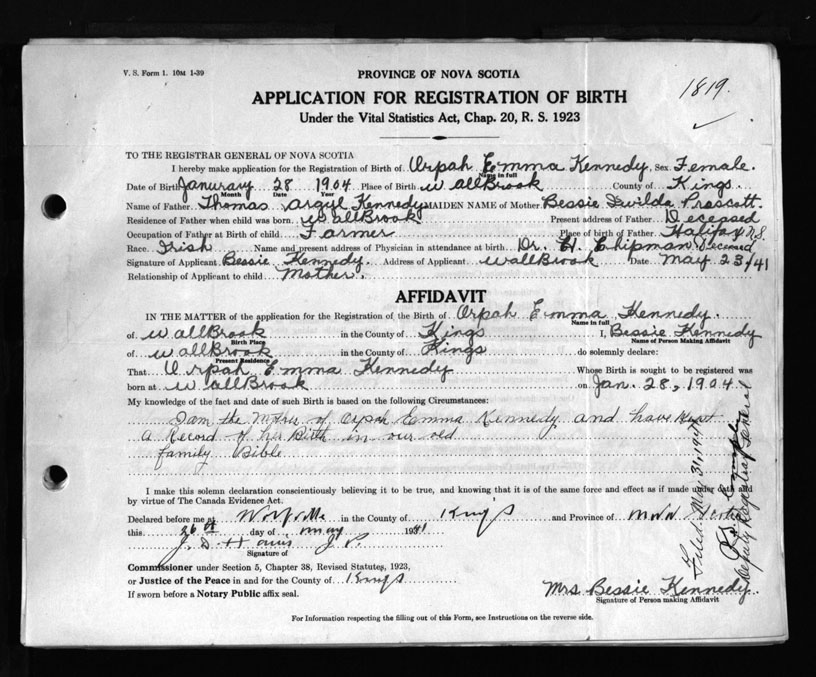 V. S. Form 1. 10M 1-39
PROVINCE OF NOVA SCOTIA
1819.
APPLICATION FOR REGISTRATION OF BIRTH
Under the Vital Statistics Act, Chap. 20, R. S. 1923
TO THE REGISTRAR GENERAL OF NOVA SCOTIA
I hereby make application for the Registration of Birth of Orpah Emma Kennedy. Sex Female.
Name in full
Date of Birth Janurary 28 1904 Place of Birth WallBrook County of Kings.
Month Date Year
Name of Father Thomas Argyl Kennedy MAIDEN NAME of Mother Bessie Prescott.
Residence of Father when child was born WallBrook Present address of Father Deceased
Occupation of Father at Birth of child Farmer Place of birth of Father Halifax N.S.
Race Irish Name and present address of Physician in attendance at birth Dr. H. Chipman, Deceased
Signature of Applicant Bessie Kennedy. Address of Applicant WallBrook Date May 23/41
Relationship of Applicant to child Mother.
AFFIDAVIT
IN THE MATTER of the application for the Registration of the Birth of Orpah Emma Kennedy.
Name in full
of WallBrook in the County of Kings I, Bessie Kennedy
Birth Place Name of Person making Affidavit
of WallBrook in the County of Kings do solemnly declare:
Present Residence
That Orpah Emma Kennedy Whose Birth is sought to be registered was
born at WallBrook on Jan. 28, 1904.
My knowledge of the fact and date of such Birth is based on the following Circumstances:
I am the Mother of Orpah Emma Kennedy and have Kept
a Record of her Birth in our old
family Bible
I make this solemn declaration conscientiously believing it to be true, and knowing that it is of the same force and effect as if made under oath and
by virtue of The Canada Evidence Act.
Declared before me at Wolfville in the County of King's and Province of Nova Scotia
this 26th day of May 1941
J. P.
Signature of
Commissioner under Section 5, Chapter 38, Revised Statutes, 1923,
or Justice of the Peace in and for the County of Kings
If sworn before a Notary Public affix seal.
Mrs. Bessie Kennedy.
Signature of Person making Affidavit
For Information respecting the filling out of this Form, see Instructions on the reverse side.
Filed May 31, 1941
Deputy Registrar General